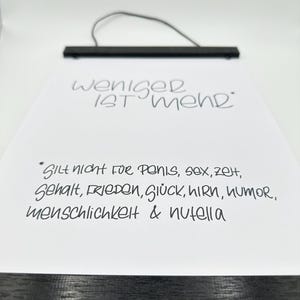 weniger
ist mehr*
*gilt nicht für penis, sex, zeit,
gehalt, frieden, glück, hirn, humor,
menschlichkeit & nutella